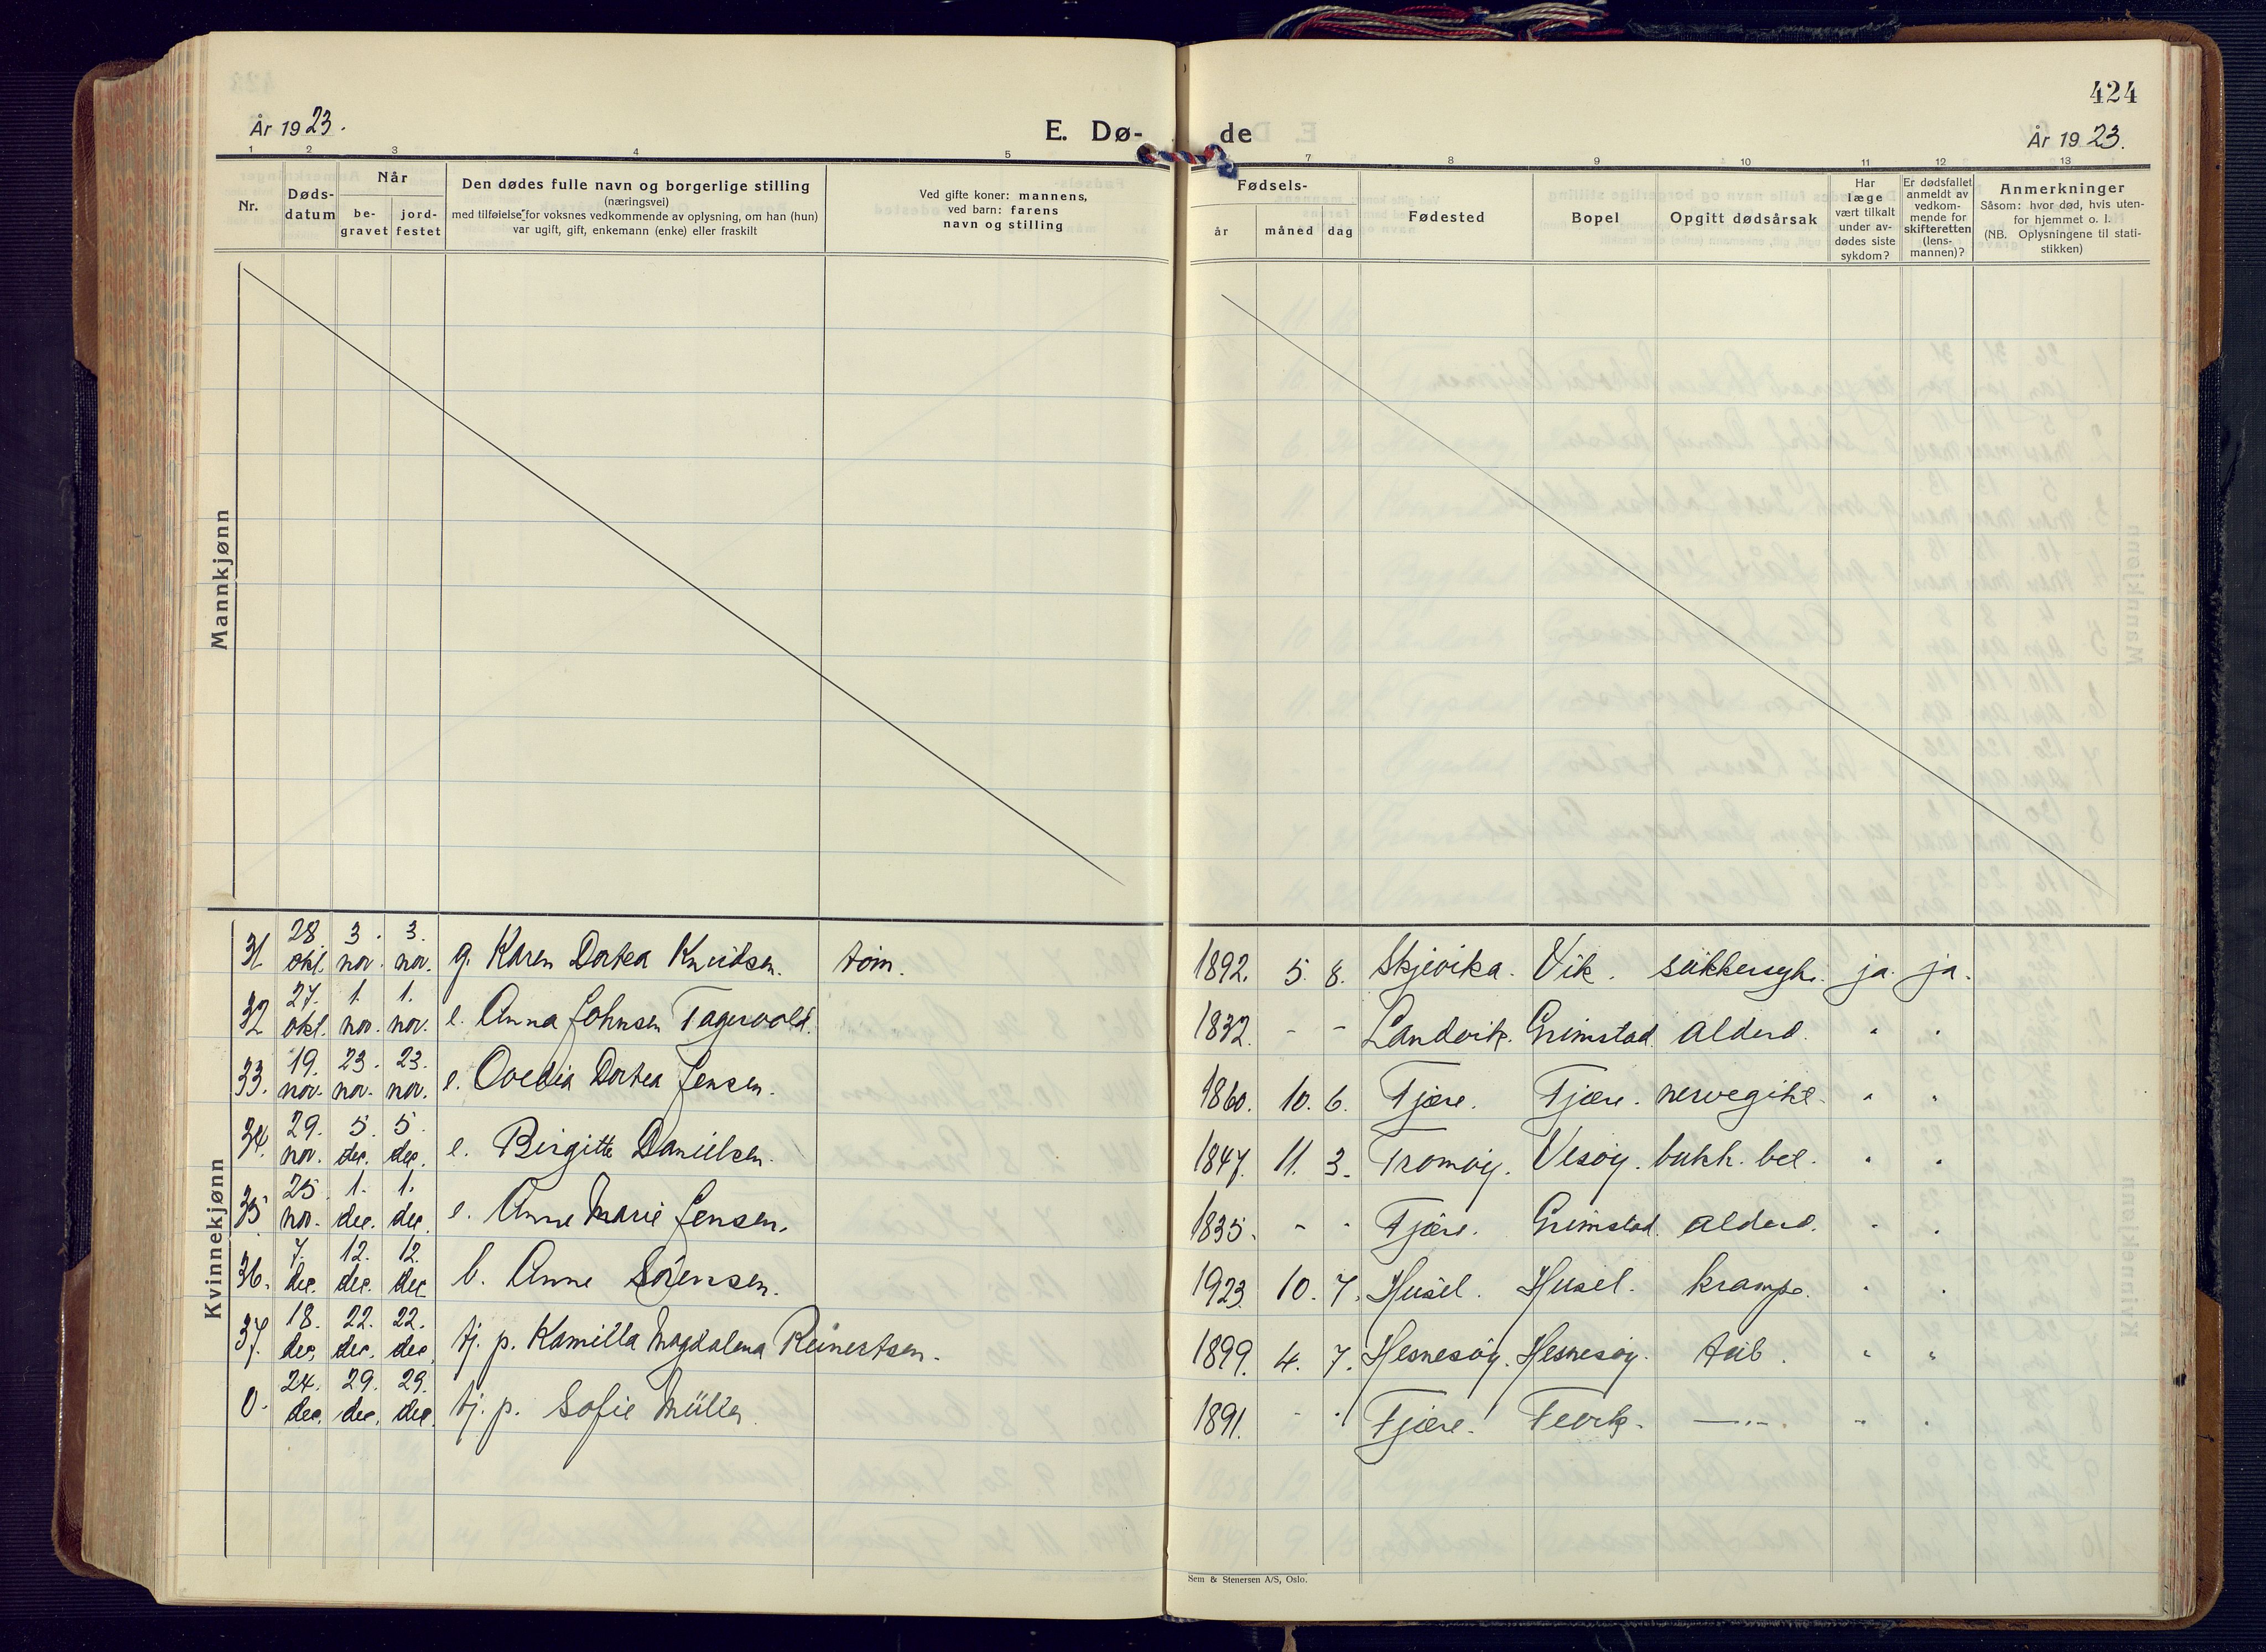 424
År 1923.
E. Dø- de
År 1923.
1 2 3 4 5 7 8 9 10 11 12 13
Nr.
Døds-
datum
Når
be-
gravet
jord-
festet
Den dødes fulle navn og borgerlige stilling
(næringsvei)
med tilføielse for voksnes vedkommende av oplysning, om han (hun)
var ugift, gift, enkemann (enke) eller fraskilt
Ved gifte koner: mannens,
ved barn: farens
navn og stilling
Fødsels-
år måned dag
Fødested
Bopel
Opgitt dødsårsak
Har
læge
vært tilkalt
under av-
dødes siste
sykdom?
Er dødsfallet
anmeldt av
vedkom-
mende for
skifteretten
(lens-
mannen)?
Anmerkninger
Såsom: hvor død, hvis uten-
for hjemmet o. l.
(NB. Oplysningene til stati-
stikken)
Mannkjønn
Kvinnekjønn
31 28. okt. 3. nov. 3. nov. g. Karen Dortea Knudsen. tøm. 1892. 5. 8. Skjevika. Vik. sukkersyk. ja. ja.
32 27. okt. 1. nov. 1. nov. e. Anna Johnsen Tagevold. 1832. - - Landvik. Grimstad. alderd. " "
33. 19. nov. 23. nov. 23. nov. e. Ovedia Dortea Jensen. 1860. 10. 6. Fjære. Fjære. " "
34. 29. nov. 5. dec. 5. dec. e. Birgitte Danielsen. 1847. 11. 3. Tromøy. Vesøy. bukh. bet. " "
35 25. nov. 1. dec. 1. dec. e. Anne Marie Jensen. 1835. - - Fjære. Grimstad. alderd. " "
36. 7. dec. 12. dec. 12. dec. b. Anne Sørensen. 1923. 10. 7. Husel. Husel. krampe. " "
37. 18. dec. 22. dec. 22. dec. tj. p. Kamilla Magdalena Reinertsen. 1899. 4. 7. Hesnesøy. Hesnesøy. tub. " "
0. 24. dec. 29. dec. 29. dec. tj. p. Sofie Müller 1891. - - Fjære. Fevik. —"— " "
Sem & Stenersen A/S, Oslo.